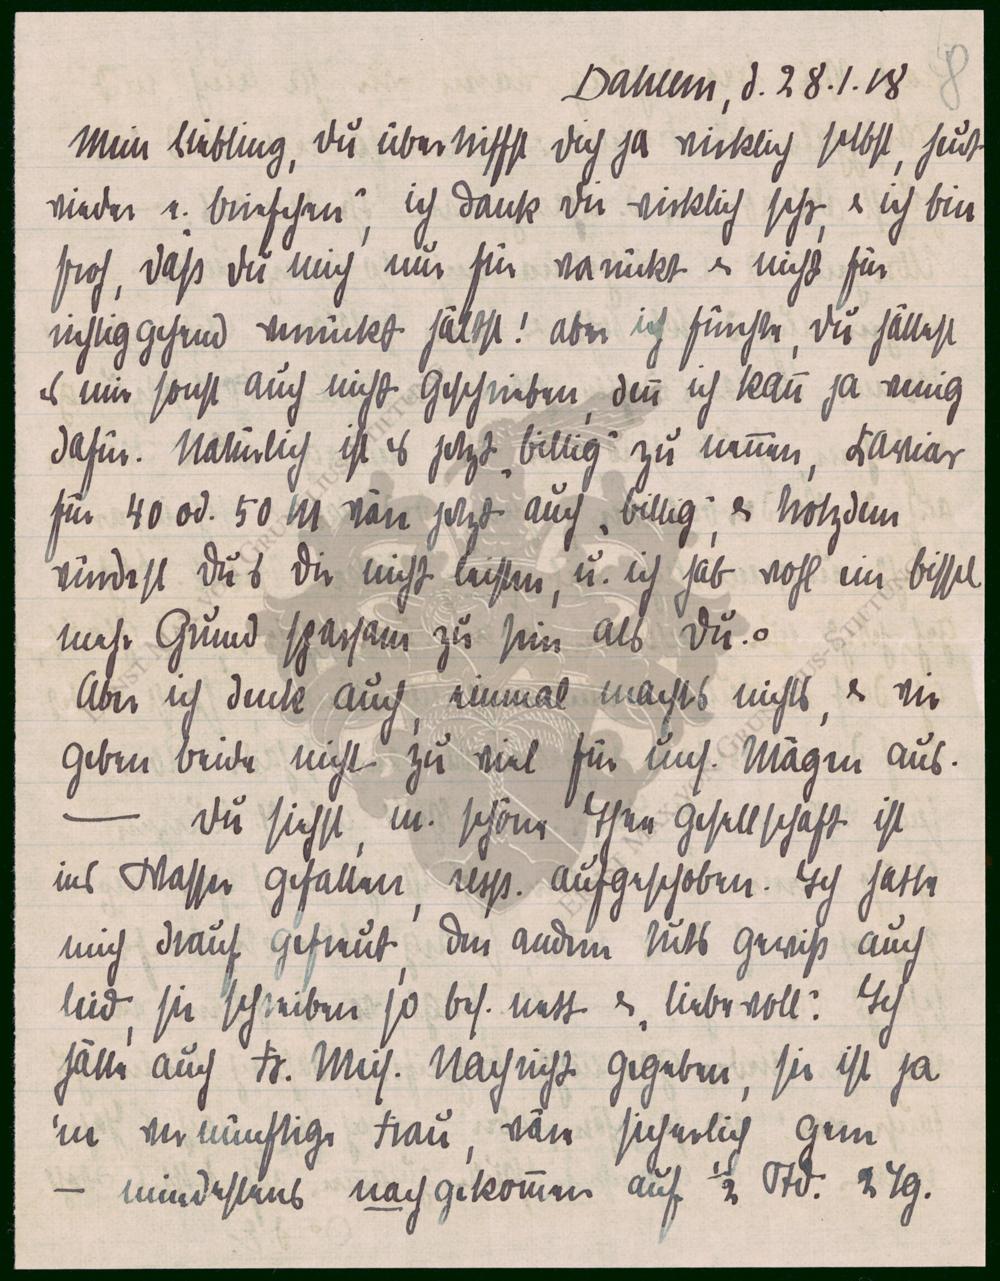 Dahlem, d. 28.1.18
Mein Liebling, du übertriffst dich ja wirklich selbst, heut
wieder e. Briefchen", ich dank dir wirklich sehr, & ich bin
froh, daß du mich nur für varückt & nicht für
richtiggehend verrückt hältst! aber ich fürchte, du hättest
es mir sonst auch nicht geschrieben, deñ ich kañ ja wenig
dafür. Natürlich ist es jetzt „billig" zu neñen, Kaviar
für 40 od. 50 M wär jetzt auch „billig", & trotzdem
würdest du's dir nicht leisten, u. ich hab wohl ein bissel
mehr Grund sparsam zu sein als du.
Aber ich denk auch, einmal machts nichts, & wir
geben beide nicht zu viel für uns. Mägen aus.
— Du siehst, m. schöne Thee Gesellschaft ist
ins Wasser gefallen, resp. aufgeschoben. Ich hatte
mich drauf gefreut, den andern tuts gewiß auch
leid, sie schreiben so bes. nett & „liebevoll". Ich
hätte auch Fr. Meis. Nachricht gegeben, sie ist ja
'ne vernünftige Frau, wäre sicherlich gern
— mindestens nachgekom̄en auf ½ Std. 2 Tg.
ERNST MAX VON GRUNELIUS-STIFTUNG
ERNST MAX VON GRUNELIUS-STIFTUNG